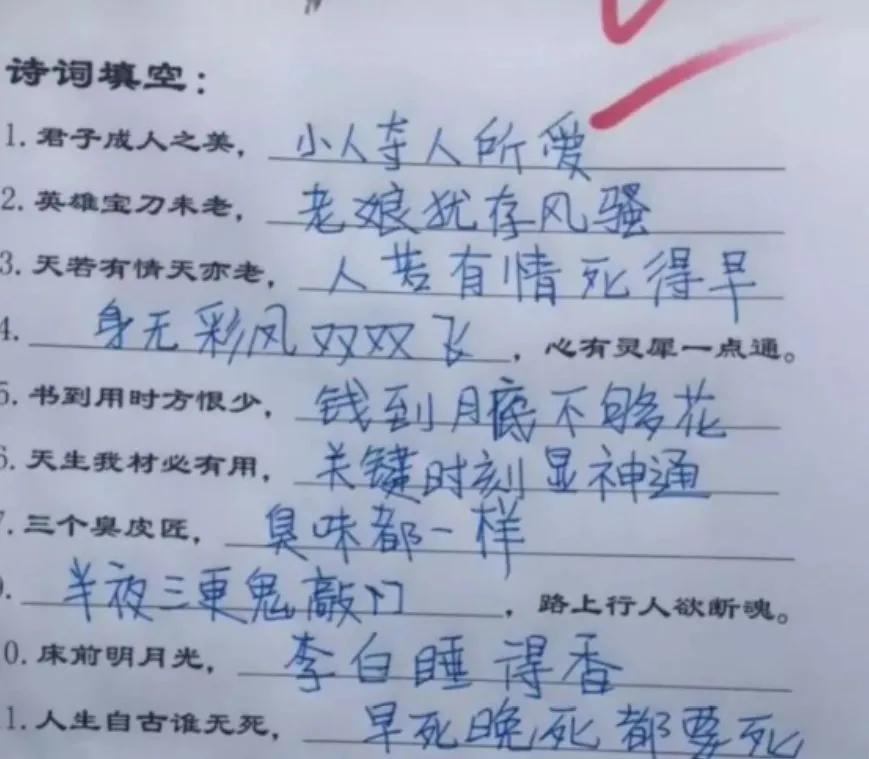 诗词填空：
1.君子成人之美，小人夺人所爱
2.英雄宝刀未老，老娘犹存风骚
3.天若有情天亦老，人若有情死得早
4.身无彩凤双双飞，心有灵犀一点通。
5.书到用时方恨少，钱到月底不够花
6.天生我材必有用，关键时刻显神通
7.三个臭皮匠，臭味都一样
.半夜三更鬼敲门，路上行人欲断魂。
0.床前明月光，李白睡得香
1.人生自古谁无死，早死晚死都要死